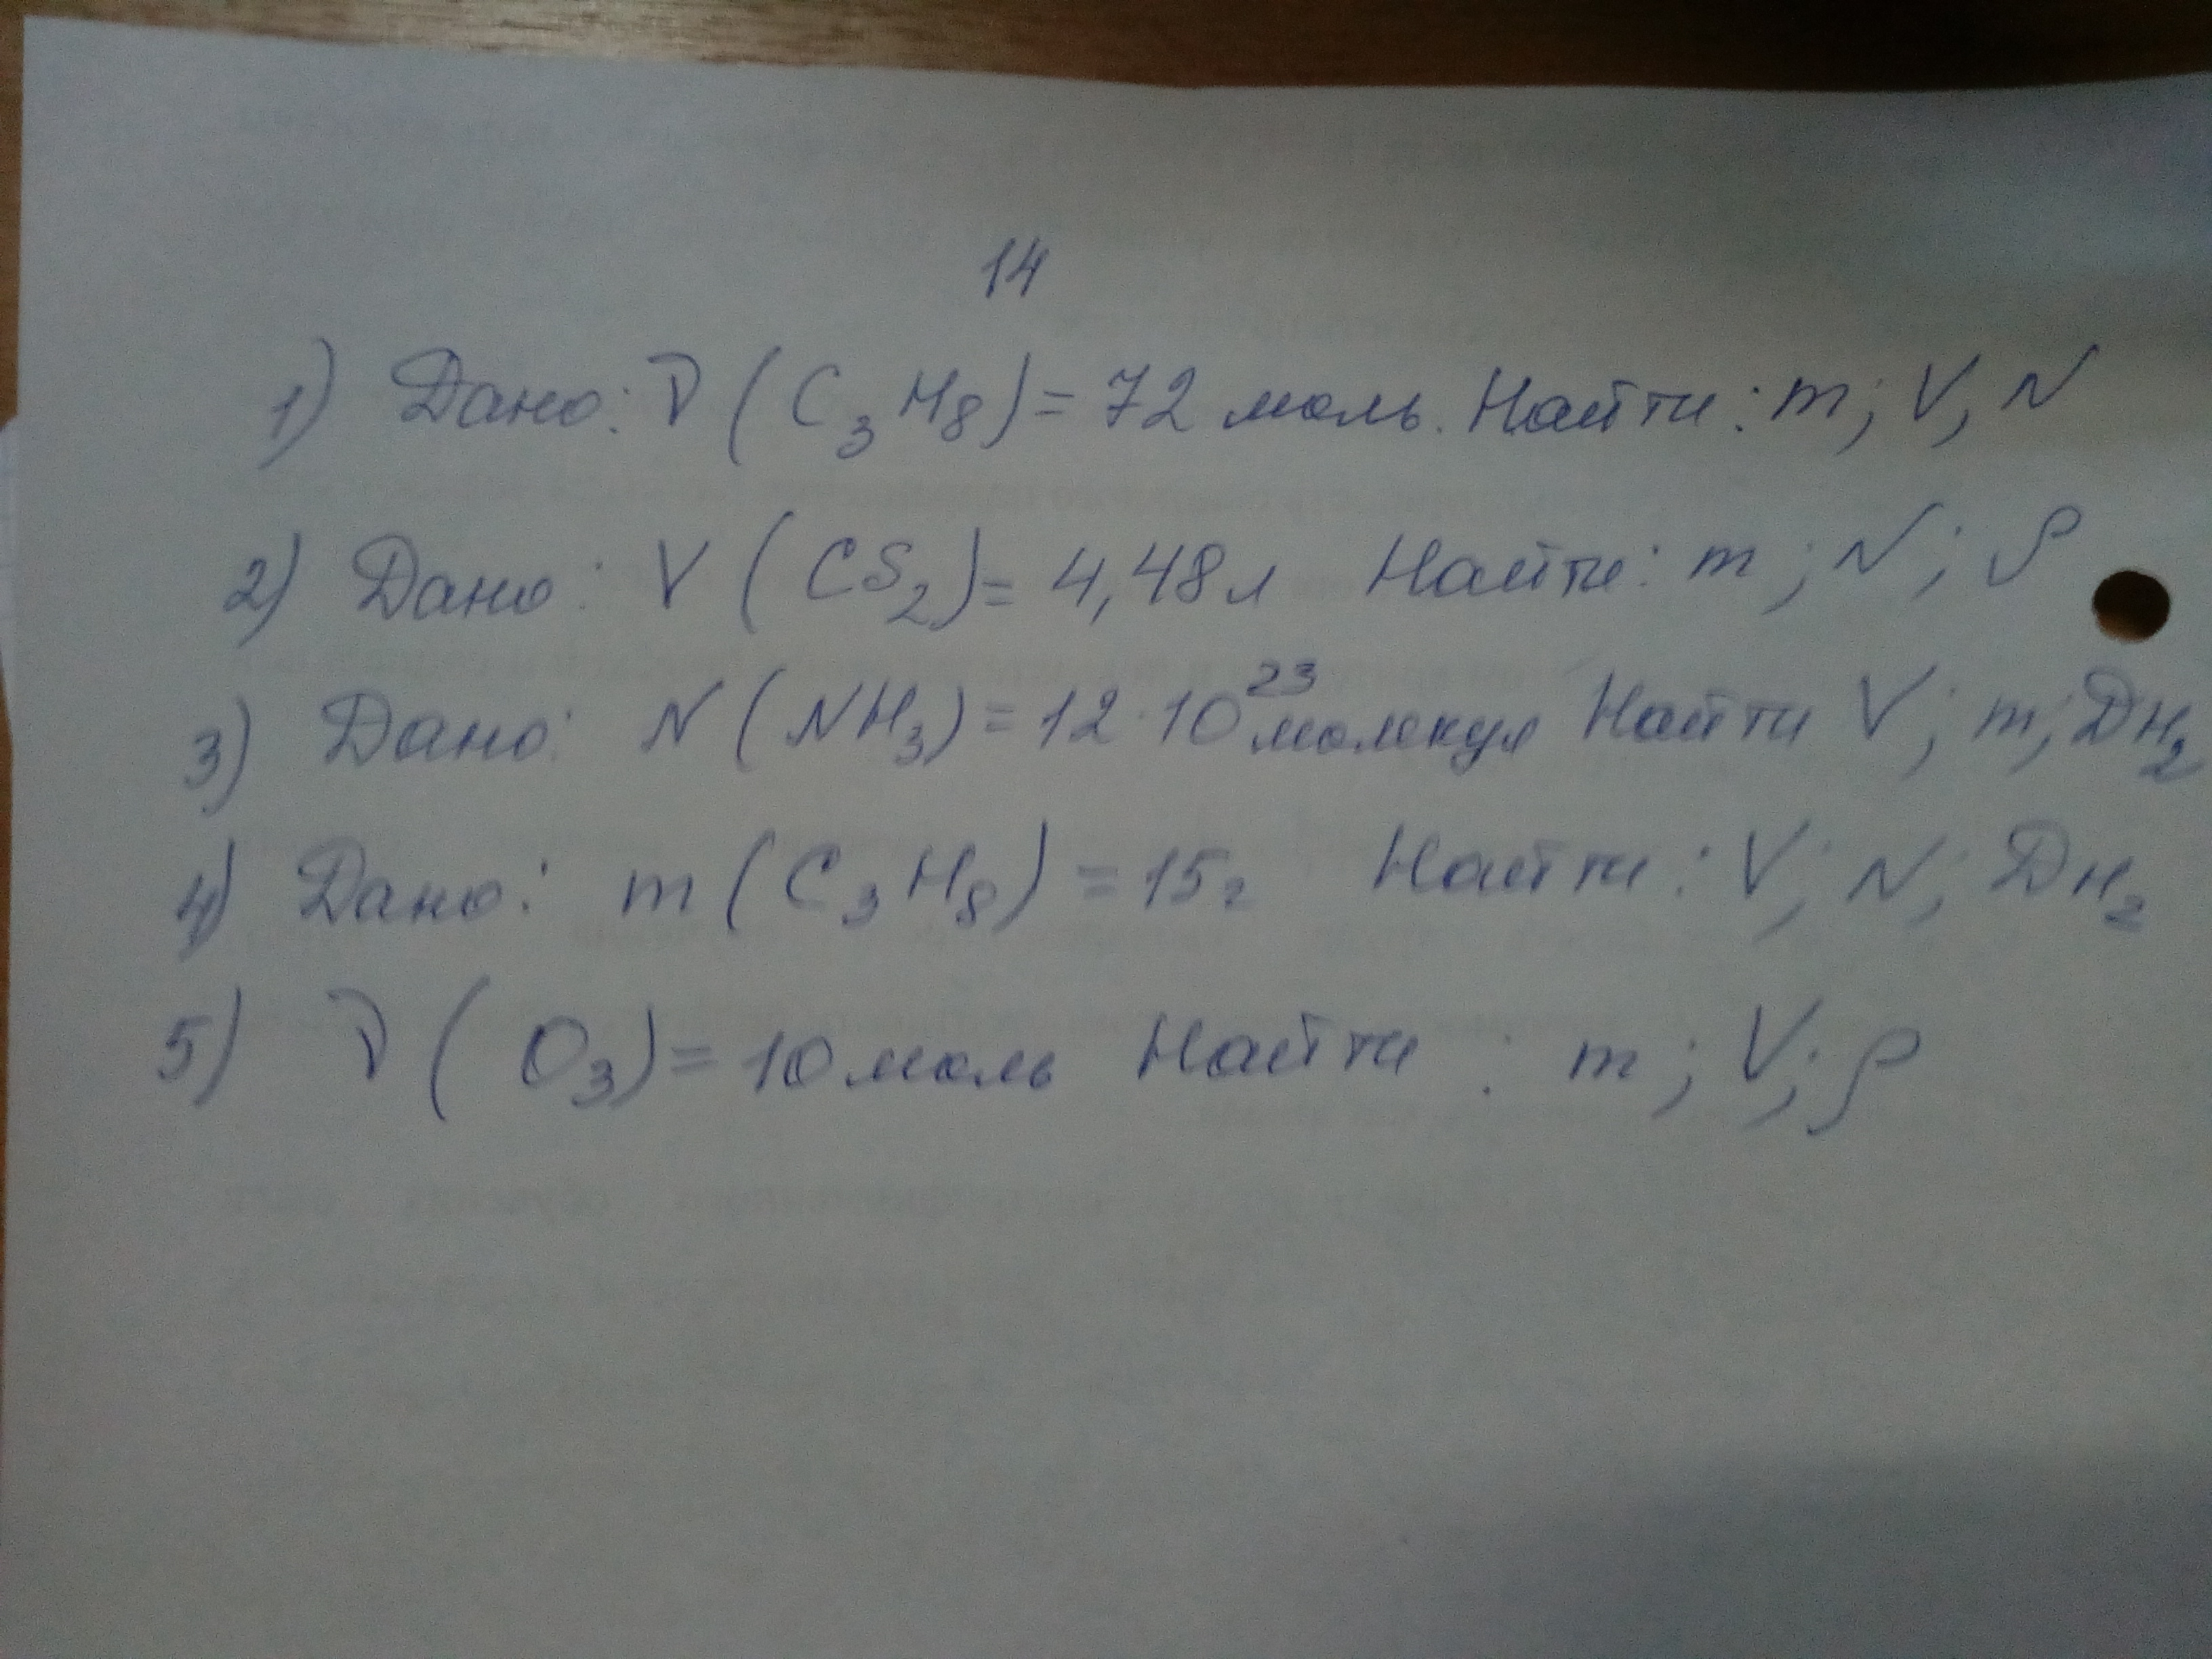 14
1) Дано: ν (C₃H₈) = 72 моль. Найти: m; V, N
2) Дано: V (CS₂) = 4,48 л Найти: m; N; ρ
3) Дано: N (NH₃) = 12·10²³ молекул Найти V; m; Dн₂
4) Дано: m (C₃H₈) = 15г Найти: V; N; Dн₂
5) ν (O₃) = 10 моль Найти : m; V; ρ